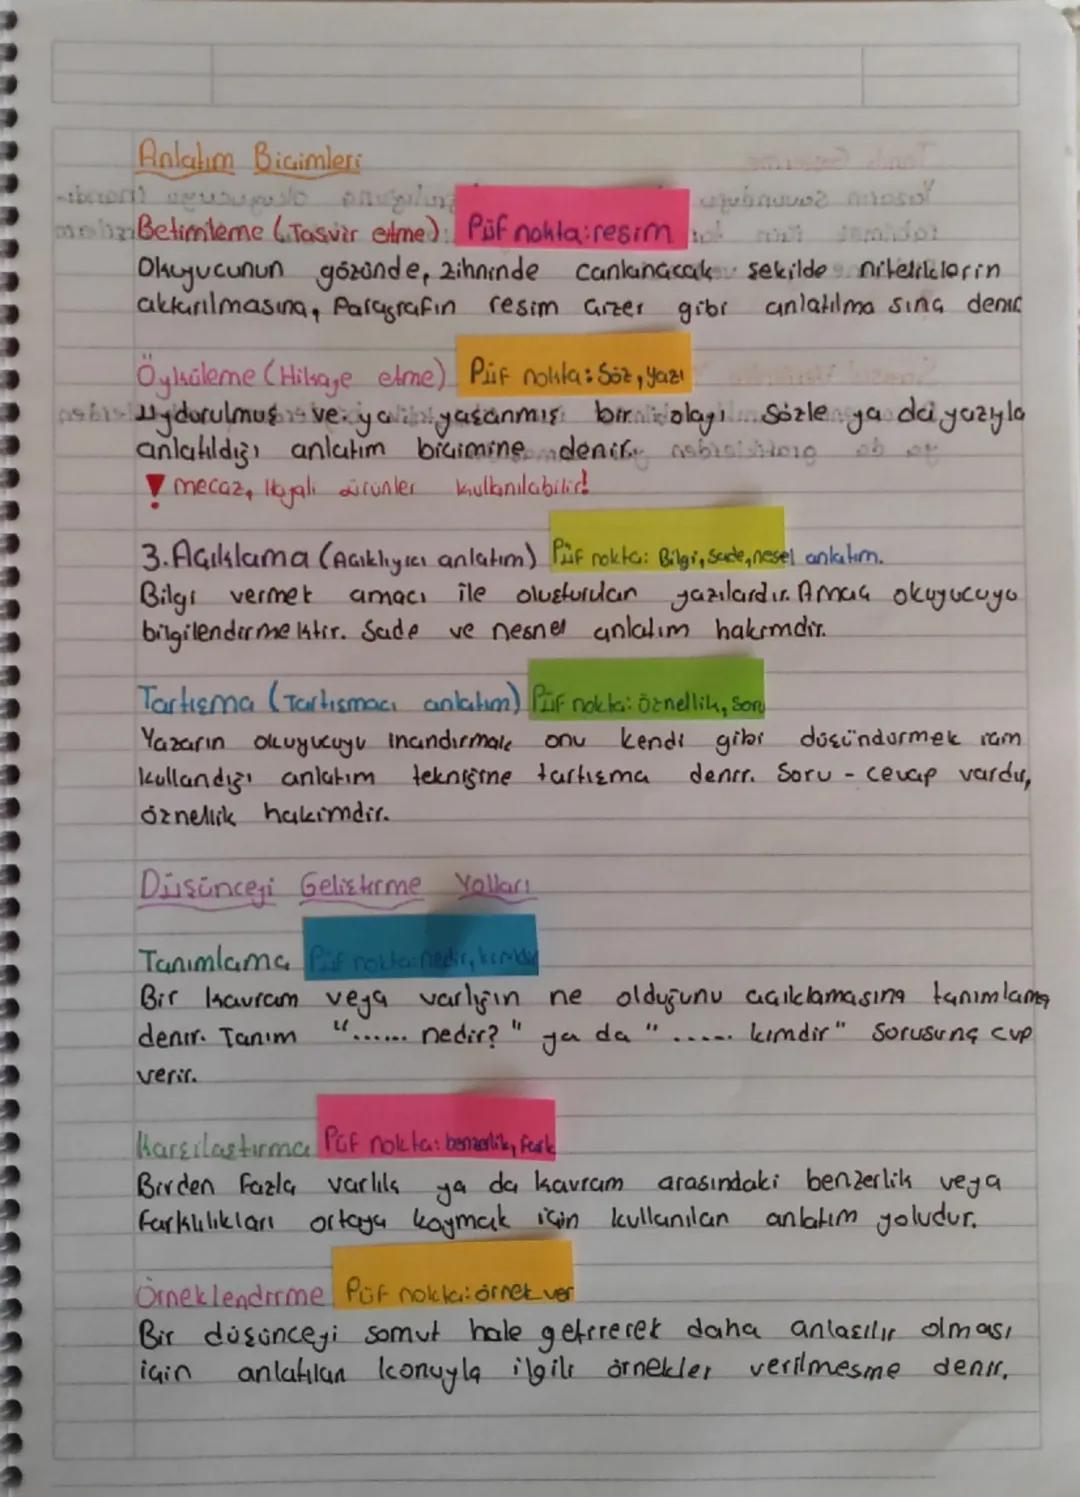 Anlatım Biçimleri
Betimleme (Tasvir etme) Püf nokta: resim
Okuyucunun gözünde, zihninde canlanacak şekilde niteliklerin
aktarılmasına, Paragrafın resim çizer gibi anlatılma sına denir
Öyküleme (Hikaye etme) Püf nokta: Söz, yazı
uydurulmuş ve ya yaşanmış bir olayı sözle ya da yazıyla
anlatıldığı anlatım biçimine denir.
! mecaz, Hayali ürünler kullanılabilir!
3. Açıklama (Açıklayıcı anlatım) Püf nokta: Bilgi, sade, nesel anlatım.
Bilgi vermek amacı ile oluşturulan yazılardır. Amaç okuyucuyu
bilgilendirmektir. Sade ve nesnel anlatım hakimdir.
Tartışma (Tartışmacı anlatım) Püf nokta: öznellik, soru
Yazarın okuyucuyu inandırmak onu kendi gibi düşündürmek için
kullandığı anlatım tekniğine tartışma denir. Soru - cevap vardır,
öznellik hakimdir.
Düşünceyi Geliştirme Yolları
Tanımlama Püf nokta: nedir, kimdir
Bir kavram veya varlığın ne olduğunu açıklamasına tanımlama
denir. Tanım "...... nedir?" ya da "...... kimdir" sorusuna cvp
verir.
Karşılaştırma Püf nokta: benzerlik, fark
Birden fazla varlık ya da kavram arasındaki benzerlik veya
farklılıkları ortaya koymak için kullanılan anlatım yoludur.
Örneklendirme Püf nokta: örnek ver
Bir düşünceyi somut hale getirerek daha anlaşılır olması
için anlatılan konuyla ilgili örnekler verilmesine denir.